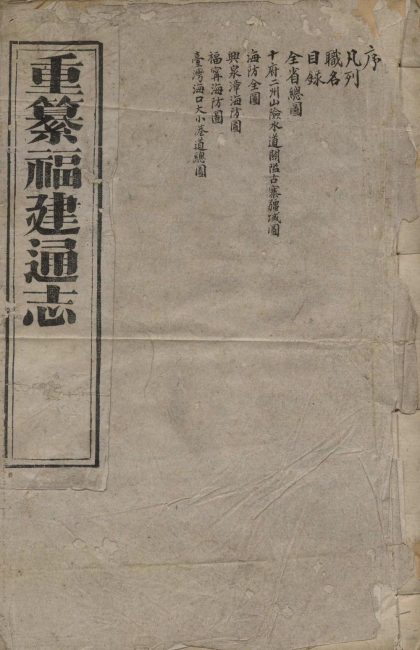 序
凡列
職名
目録
全省總圖
十府二州山險水道關隘古寨疆域圖
海防全圖
興泉漳海防圖
福寧海防圖
臺灣海口大小港道總圖
重纂福建通志